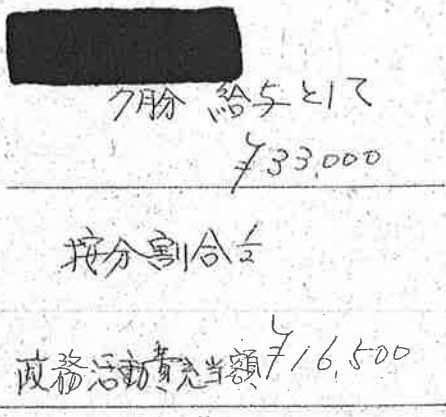 7月分 給与として
¥33,000
按分割合 1/2
政務活動費充当額 ¥16,500